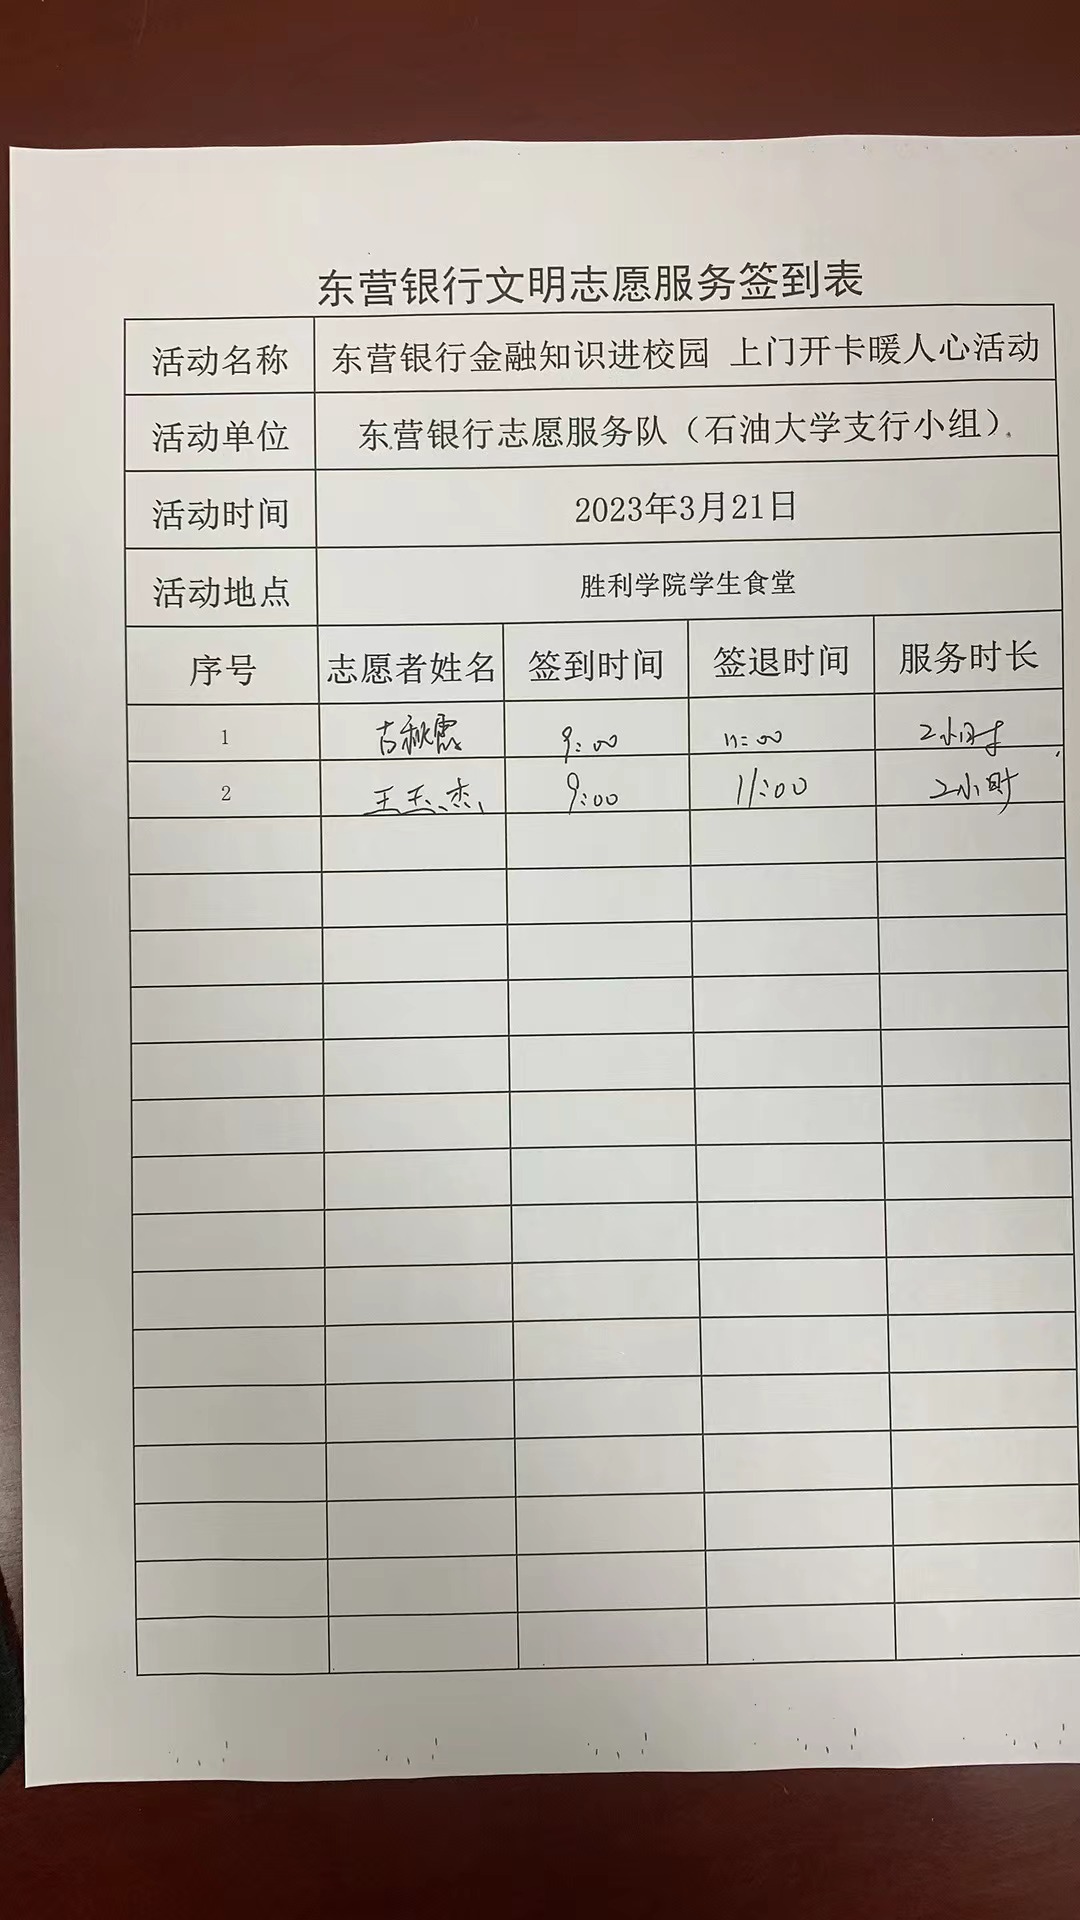 东营银行文明志愿服务签到表
活动名称 东营银行金融知识进校园 上门开卡暖人心活动
活动单位 东营银行志愿服务队（石油大学支行小组）
活动时间 2023年3月21日
活动地点 胜利学院学生食堂
序号 志愿者姓名 签到时间 签退时间 服务时长
1 古秋霞 9:00 11:00 2小时
2 王玉杰 9:00 11:00 2小时